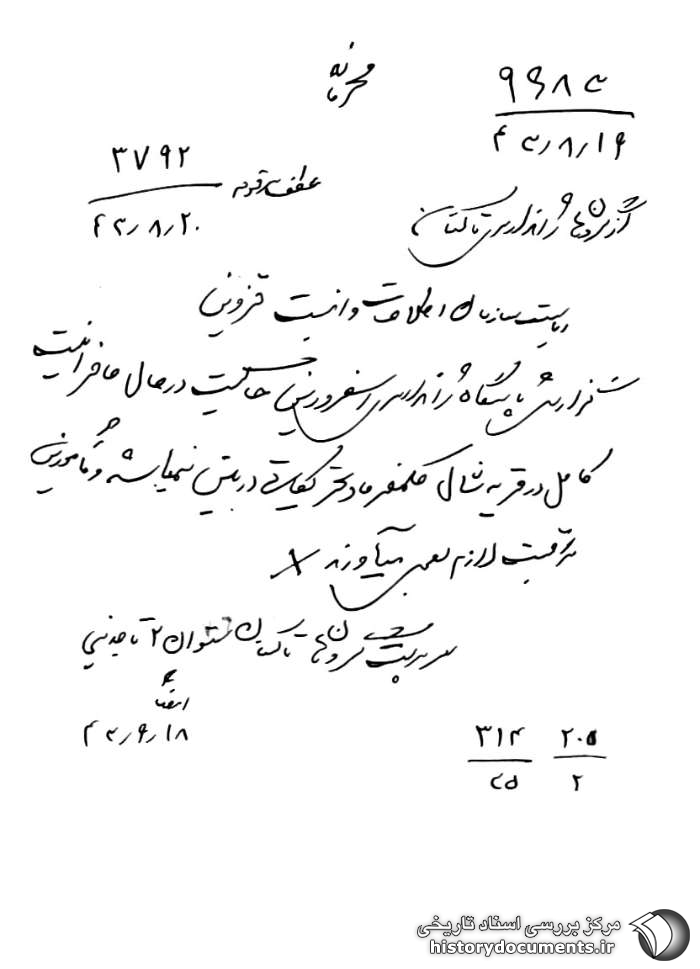 محرمانه
۹۶۸۴
۴۳/۸/۱۶
۳۷۹۲
۴۳/۸/۲۰
عطف به مرقومه
از گروهان ژاندارمری تاکستان
ریاست سازمان اطلاعات و امنیت قزوین
گزارش پاسگاه ژاندارمری اسفرورین حاکیست در حال حاضر امنیت
کامل در قریه شال حکمفرما و تحریکاتی در بین نمیباشد و مامورین
مراقبت لازم بعمل میآورند
سرپرست گروهان تاکستان ستوان ۲
امضاء
۴۳/۹/۱۸
۳۱۴
۴۵
۲۰۵
۲
مرکز بررسی اسناد تاریخی
historydocuments.ir